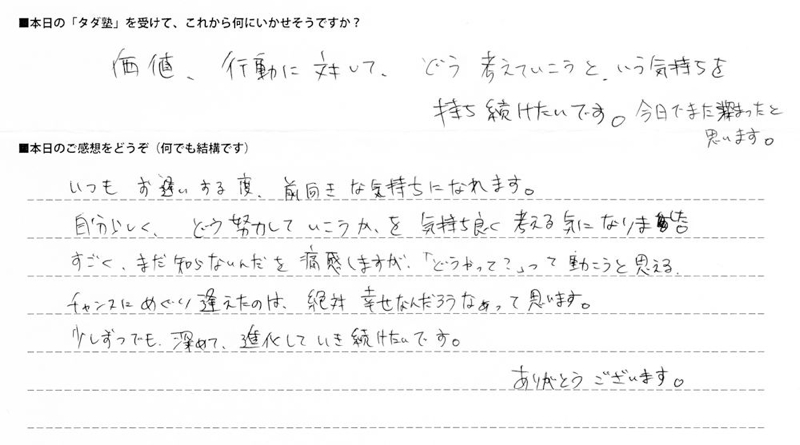 ■本日の「タダ塾」を受けて、これから何にいかせそうですか？
価値、行動に対して、どう考えていこうと、いう気持ちを
持ち続けたいです。今日でまた深まったと
思います。
■本日のご感想をどうぞ（何でも結構です）
いつもお逢いする度、前向きな気持ちになれます。
自分らしく、どう努力していこうか、を気持ち良く考える気になりま
すごく、まだ知らないんだを痛感しますが、「どうやって？」って動こうと思える、
チャンスにめぐり逢えたのは、絶対幸せなんだろうなぁって思います。
少しずつでも、深めて、進化していき続けたいです。
ありがとうございます。